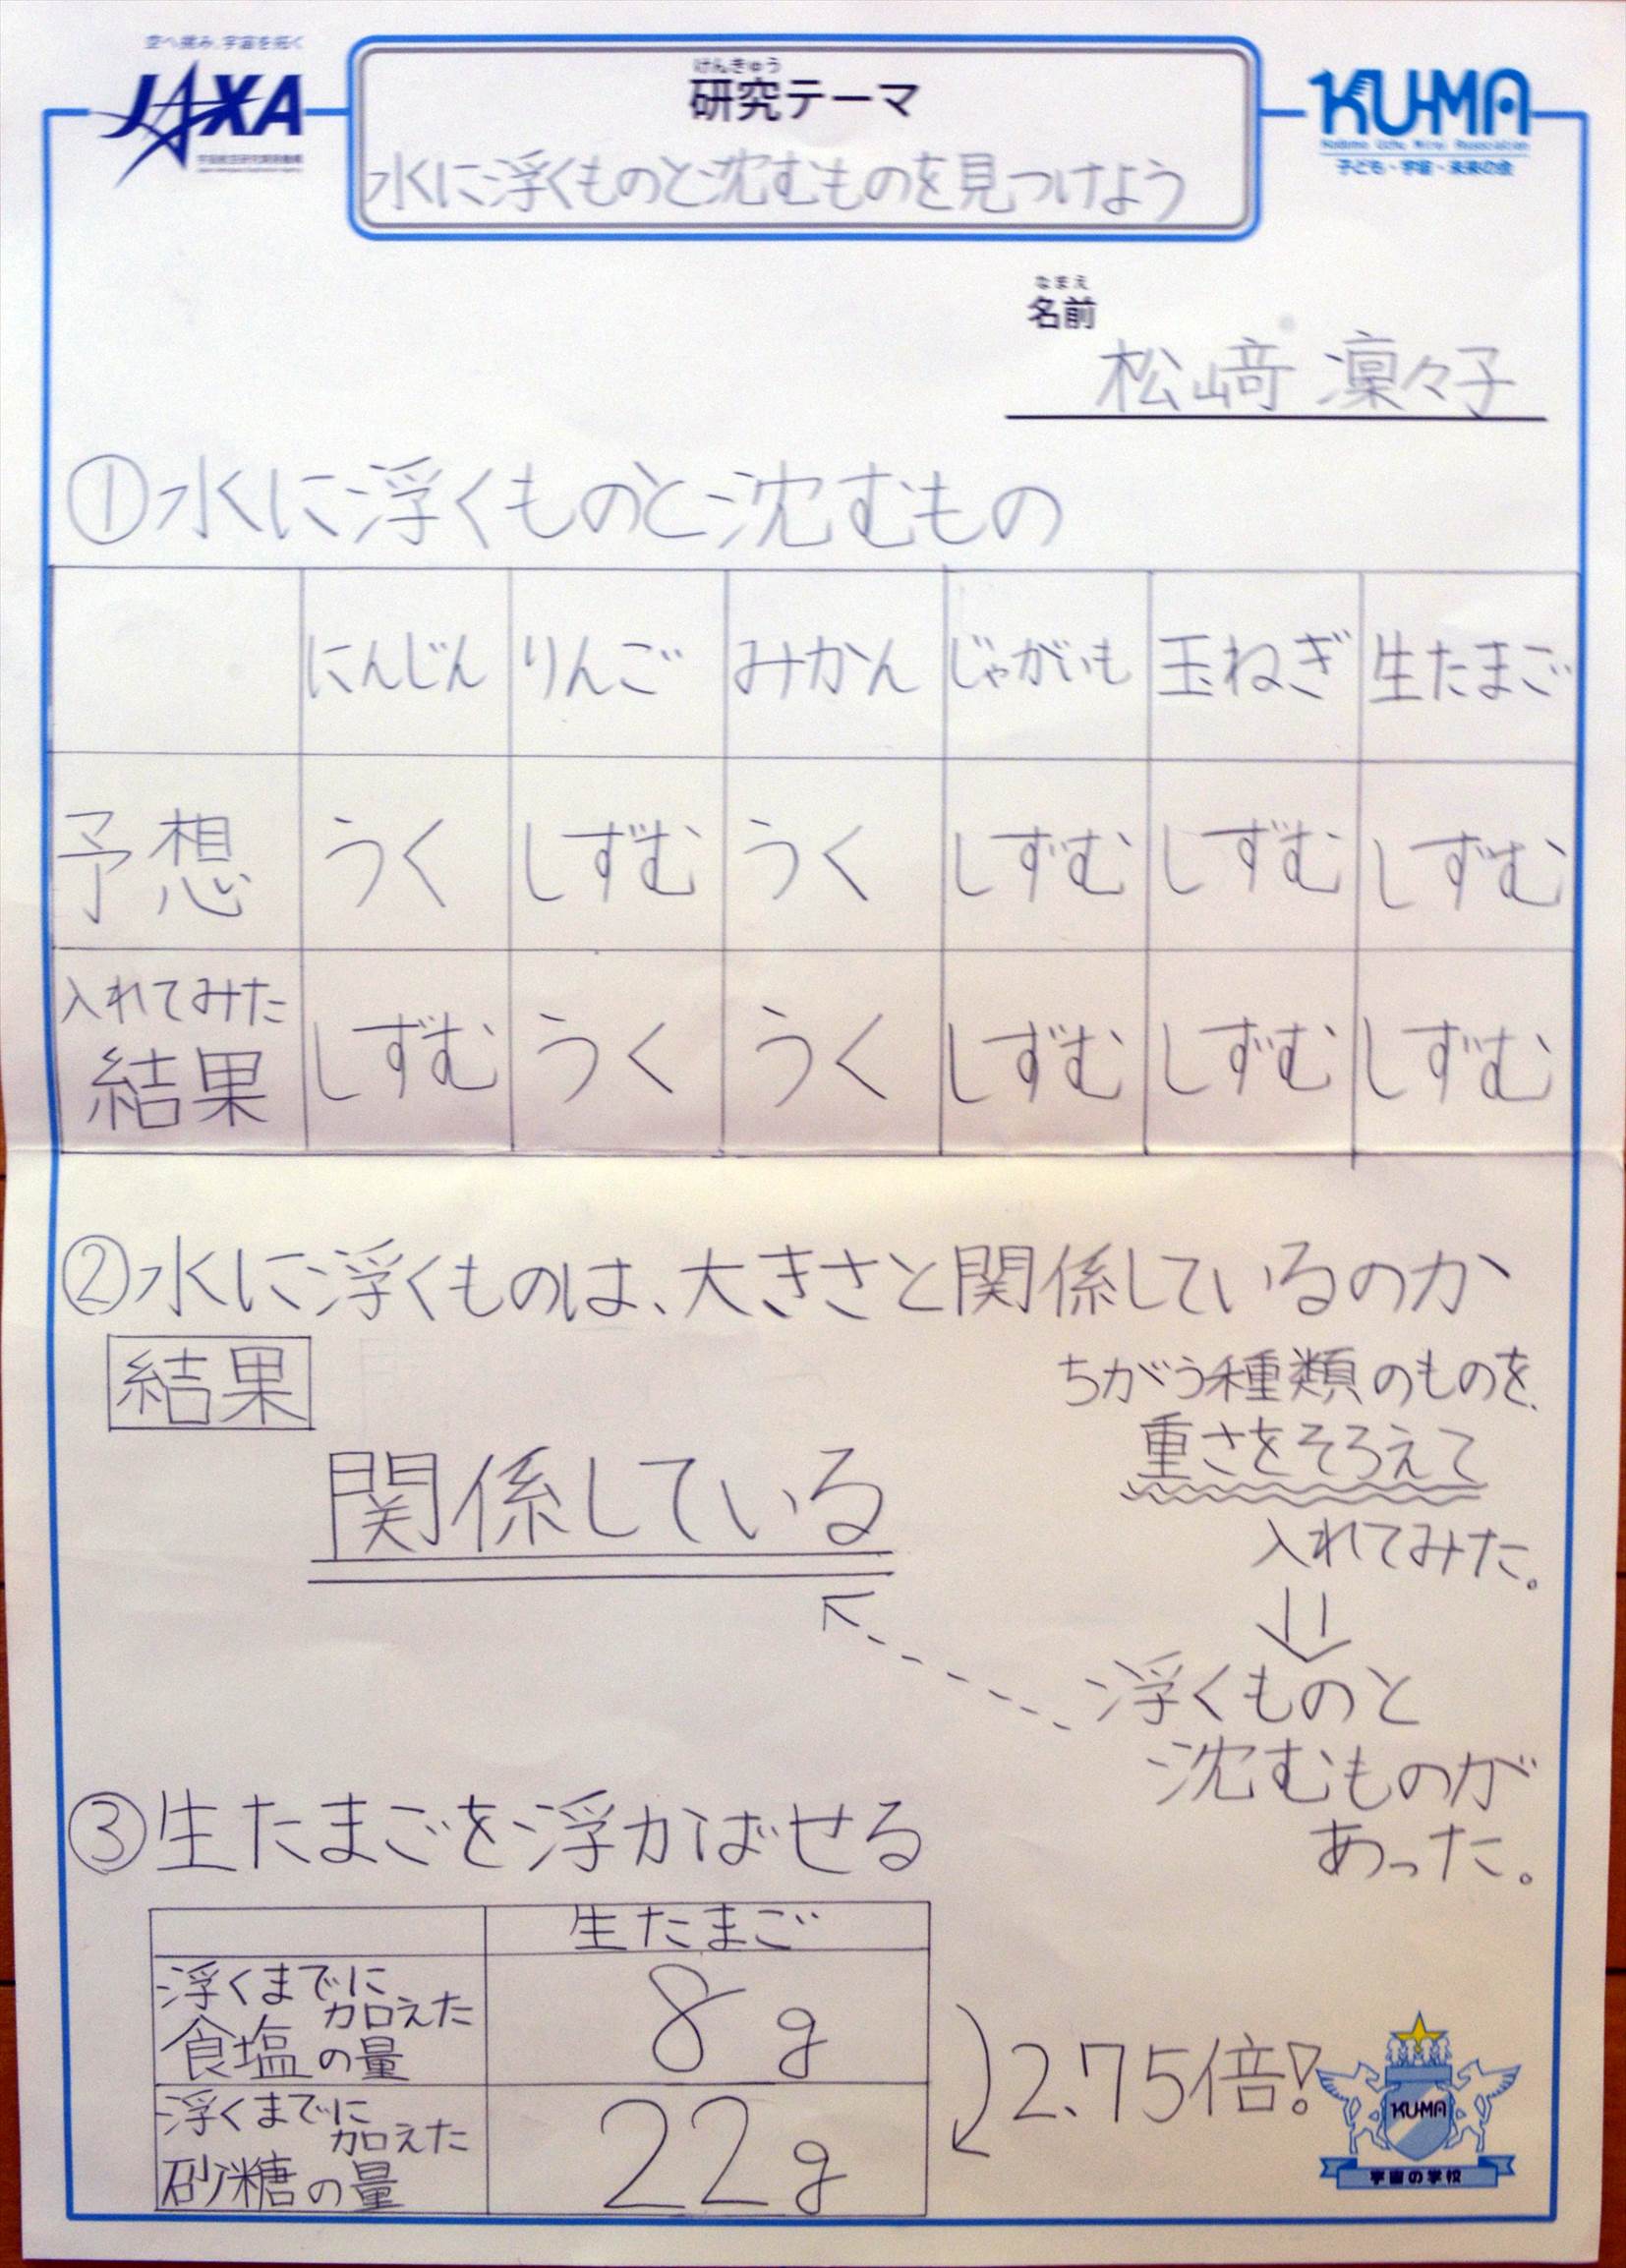 空へ挑み、宇宙を拓く
JAXA
KUMA
子ども・宇宙・未来の会
けんきゅう
研究テーマ
水に浮くものと沈むものを見つけよう
なまえ
名前
松﨑 凛々子
①水に浮くものと沈むもの
にんじん りんご みかん じゃがいも 玉ねぎ 生たまご
予想 うく しずむ うく しずむ しずむ しずむ
入れてみた
結果 しずむ うく うく しずむ しずむ しずむ
②水に浮くものは、大きさと関係しているのか
結果
関係している
ちがう種類のものを、
重さをそろえて
入れてみた。
浮くものと
沈むものが
あった。
③生たまごを浮かばせる
生たまご
浮くまでに
加えた
食塩の量 8g
浮くまでに
加えた
砂糖の量 22g
2.75倍!
KUMA
宇宙の学校